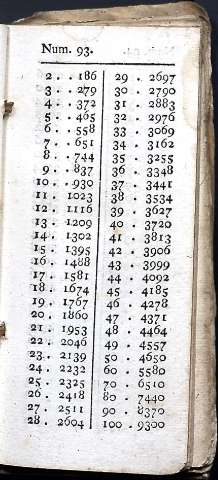 Num. 93.
2 . . 186 29 . 2697
3 . . 279 30 . 2790
4 . . 372 31 . 2883
5 . . 465 32 . 2976
6 . . 558 33 . 3069
7 . . 651 34 . 3162
8 . . 744 35 . 3255
9 . . 837 36 . 3348
10 . . 930 37 . 3441
11 . 1023 38 . 3534
12 . 1116 39 . 3627
13 . 1209 40 . 3720
14 . 1302 41 . 3813
15 . 1395 42 . 3906
16 . 1488 43 . 3999
17 . 1581 44 . 4092
18 . 1674 45 . 4185
19 . 1767 46 . 4278
20 . 1860 47 . 4371
21 . 1953 48 . 4464
22 . 2046 49 . 4557
23 . 2139 50 . 4650
24 . 2232 60 . 5580
25 . 2325 70 . 6510
26 . 2418 80 . 7440
27 . 2511 90 . 8370
28 . 2604 100 . 9300